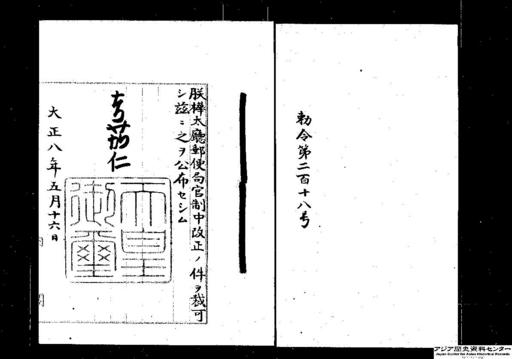 勅令第二百十八号
朕樺太廳郵便局官制中改正ノ件ヲ裁可
シ茲ニ之ヲ公布セシム
嘉仁
天皇
御璽
大正八年五月十六日
内閣
アジア歴史資料センター
Japan Center for Asian Historical Records